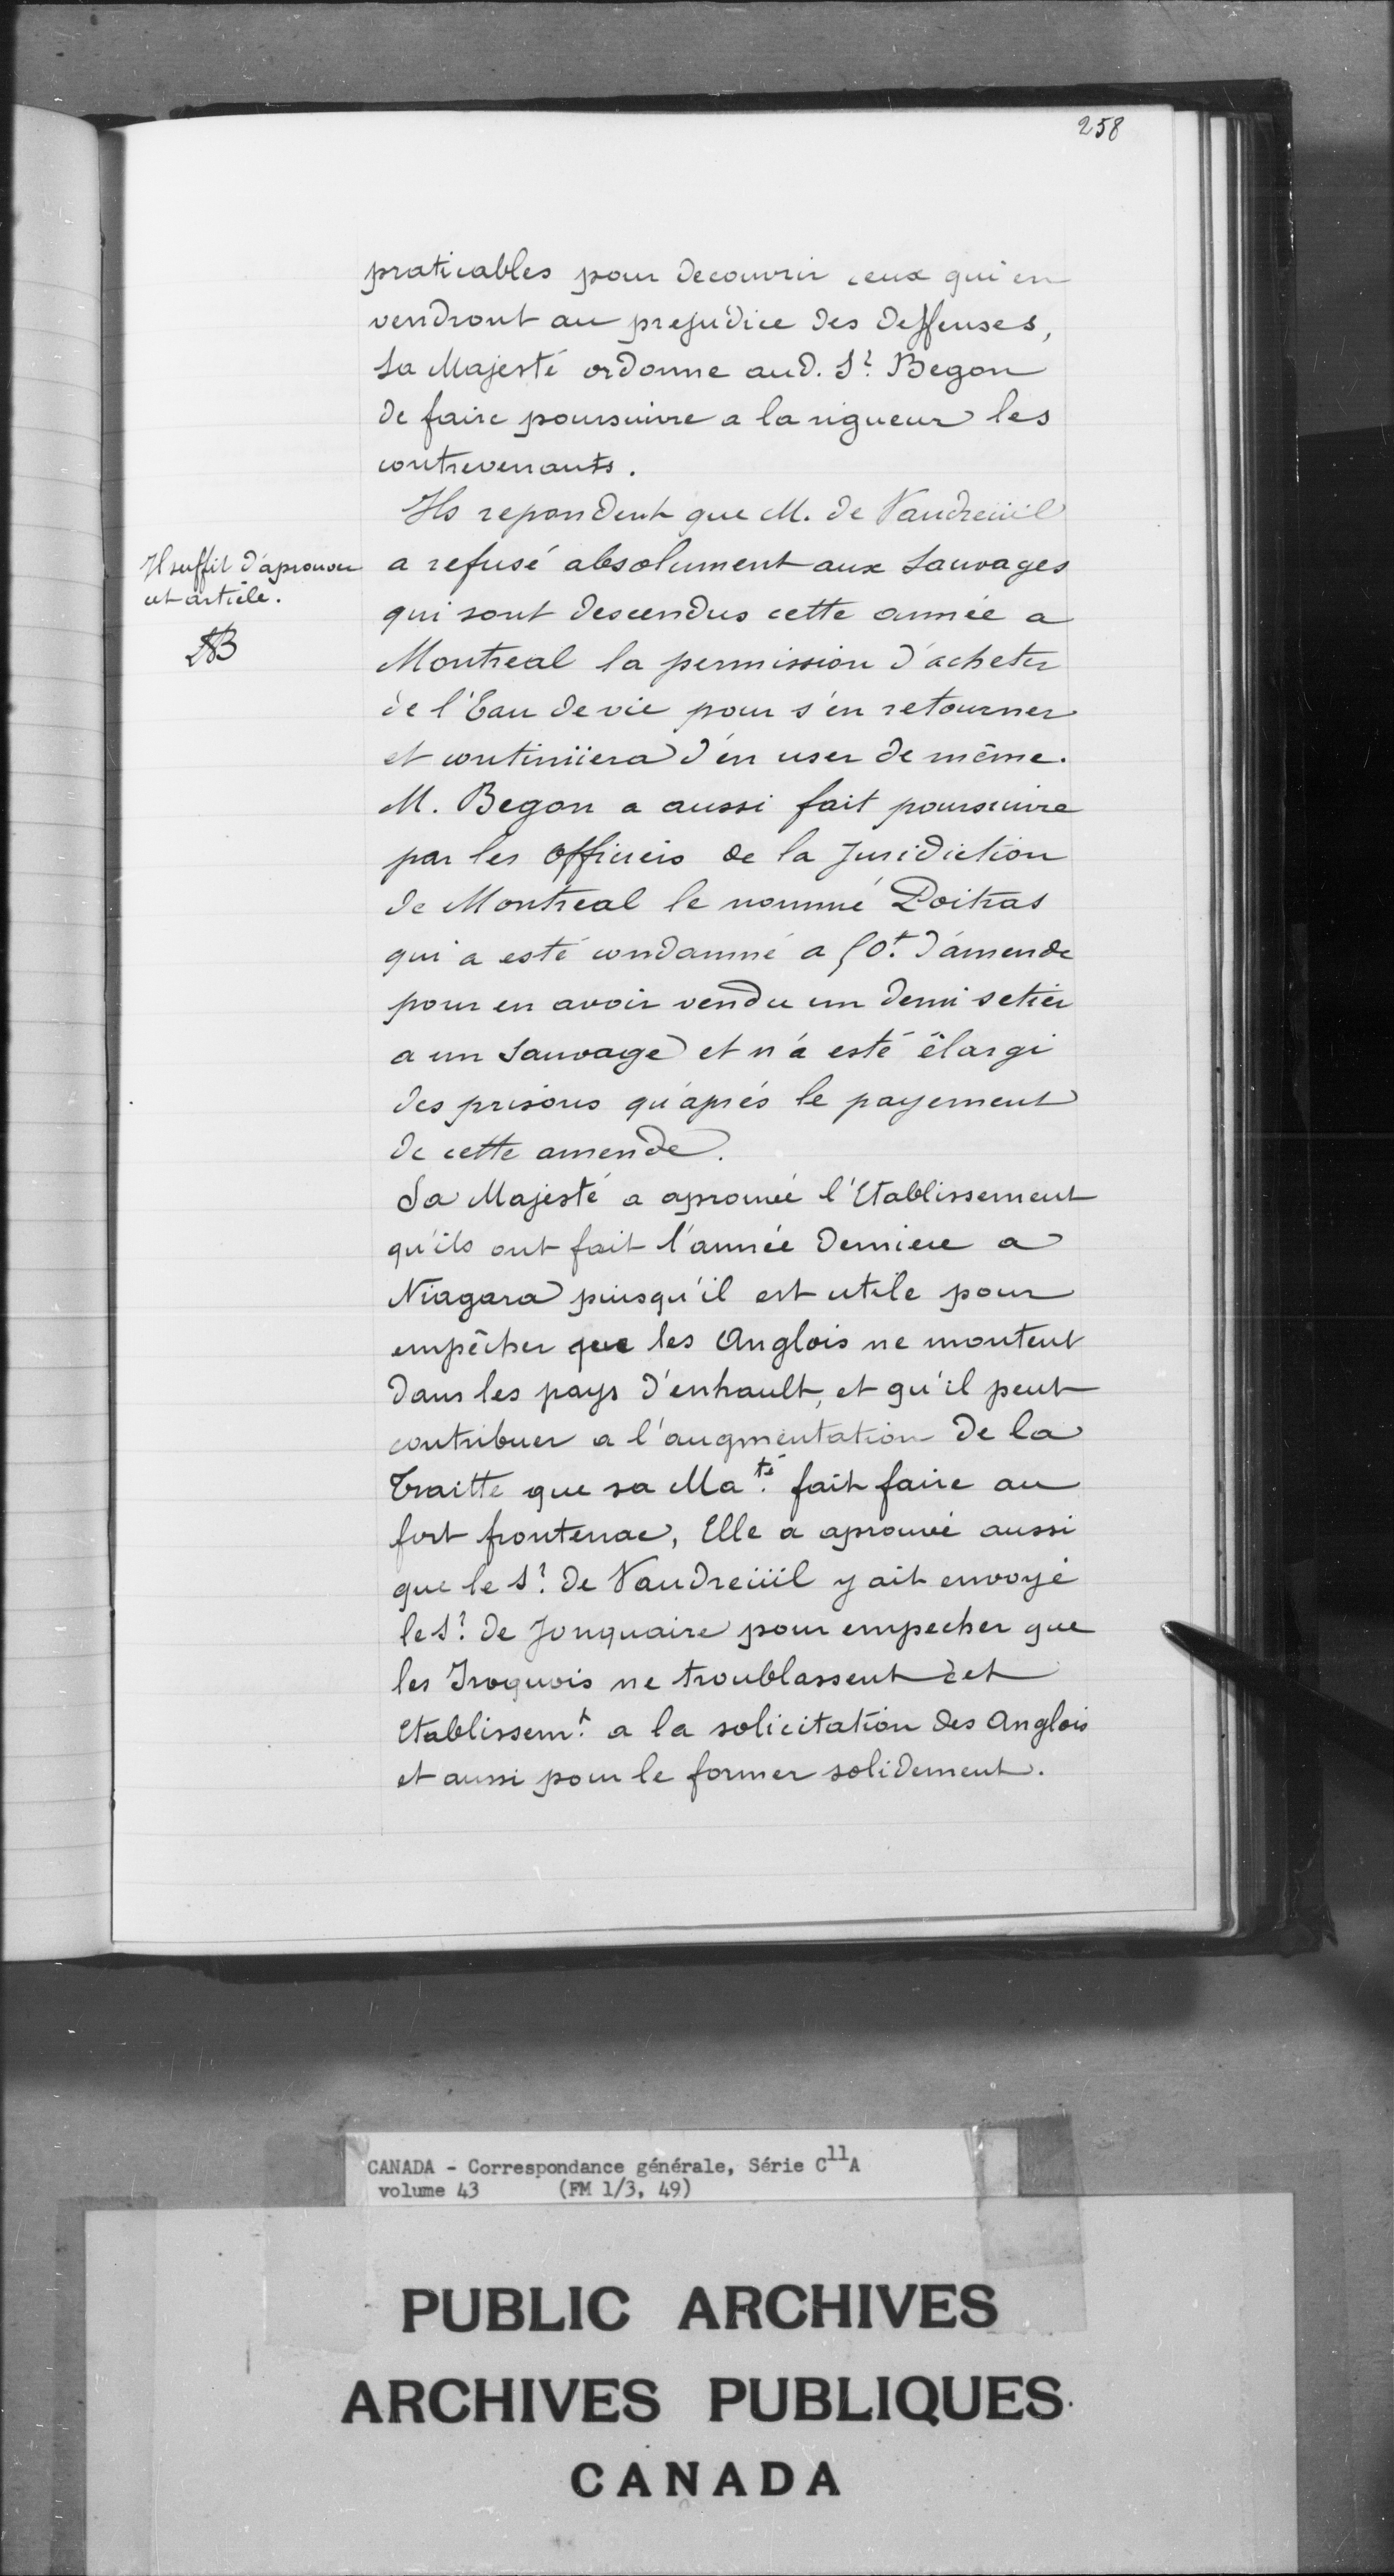 258
praticables pour decouvrir ceux qui en
vendront au prejudice des deffenses,
Sa Majesté ordonne aud. Sr. Begon
de faire poursuivre a la rigueur les
contrevenants.
Ils repondent que M. de Vaudreüil
Il suffit d'aprouver
cet article.
a refusé absolument aux Sauvages
qui sont descendus cette année a
Montreal la permission d'acheter
de l'Eau de vie pour s'en retourner
et continüera d'en user de même.
M. Begon a aussi fait poursuivre
par les officiers de la Jurisdiction
de Montreal le nommé Poitras
qui a esté condamné a 50t. d'amende
pour en avoir vendu un demi setier
a un Sauvage et n'a esté élargi
des prisons qu'aprés le payement
de cette amende.
Sa Majesté a aprouvé l'Etablissement
qu'ils ont fait l'année derniere a
Niagara puisqu'il est utile pour
empêcher que les Anglois ne montent
dans les pays d'enhault, et qu'il peut
contribuer a l'augmentation de la
Traitte que sa Maté. fait faire au
fort frontenac, Elle a aprouvé aussi
que le Sr. de Vaudreüil y ait envoyé
le Sr. de Jonquaire pour empecher que
les Iroquois ne troublassent cet
Etablissemt. a la solicitation des Anglois
et aussi pour le former solidement.
CANADA - Correspondance générale, Série C11A
volume 43 (FM 1/3, 49)
PUBLIC ARCHIVES
ARCHIVES PUBLIQUES
CANADA